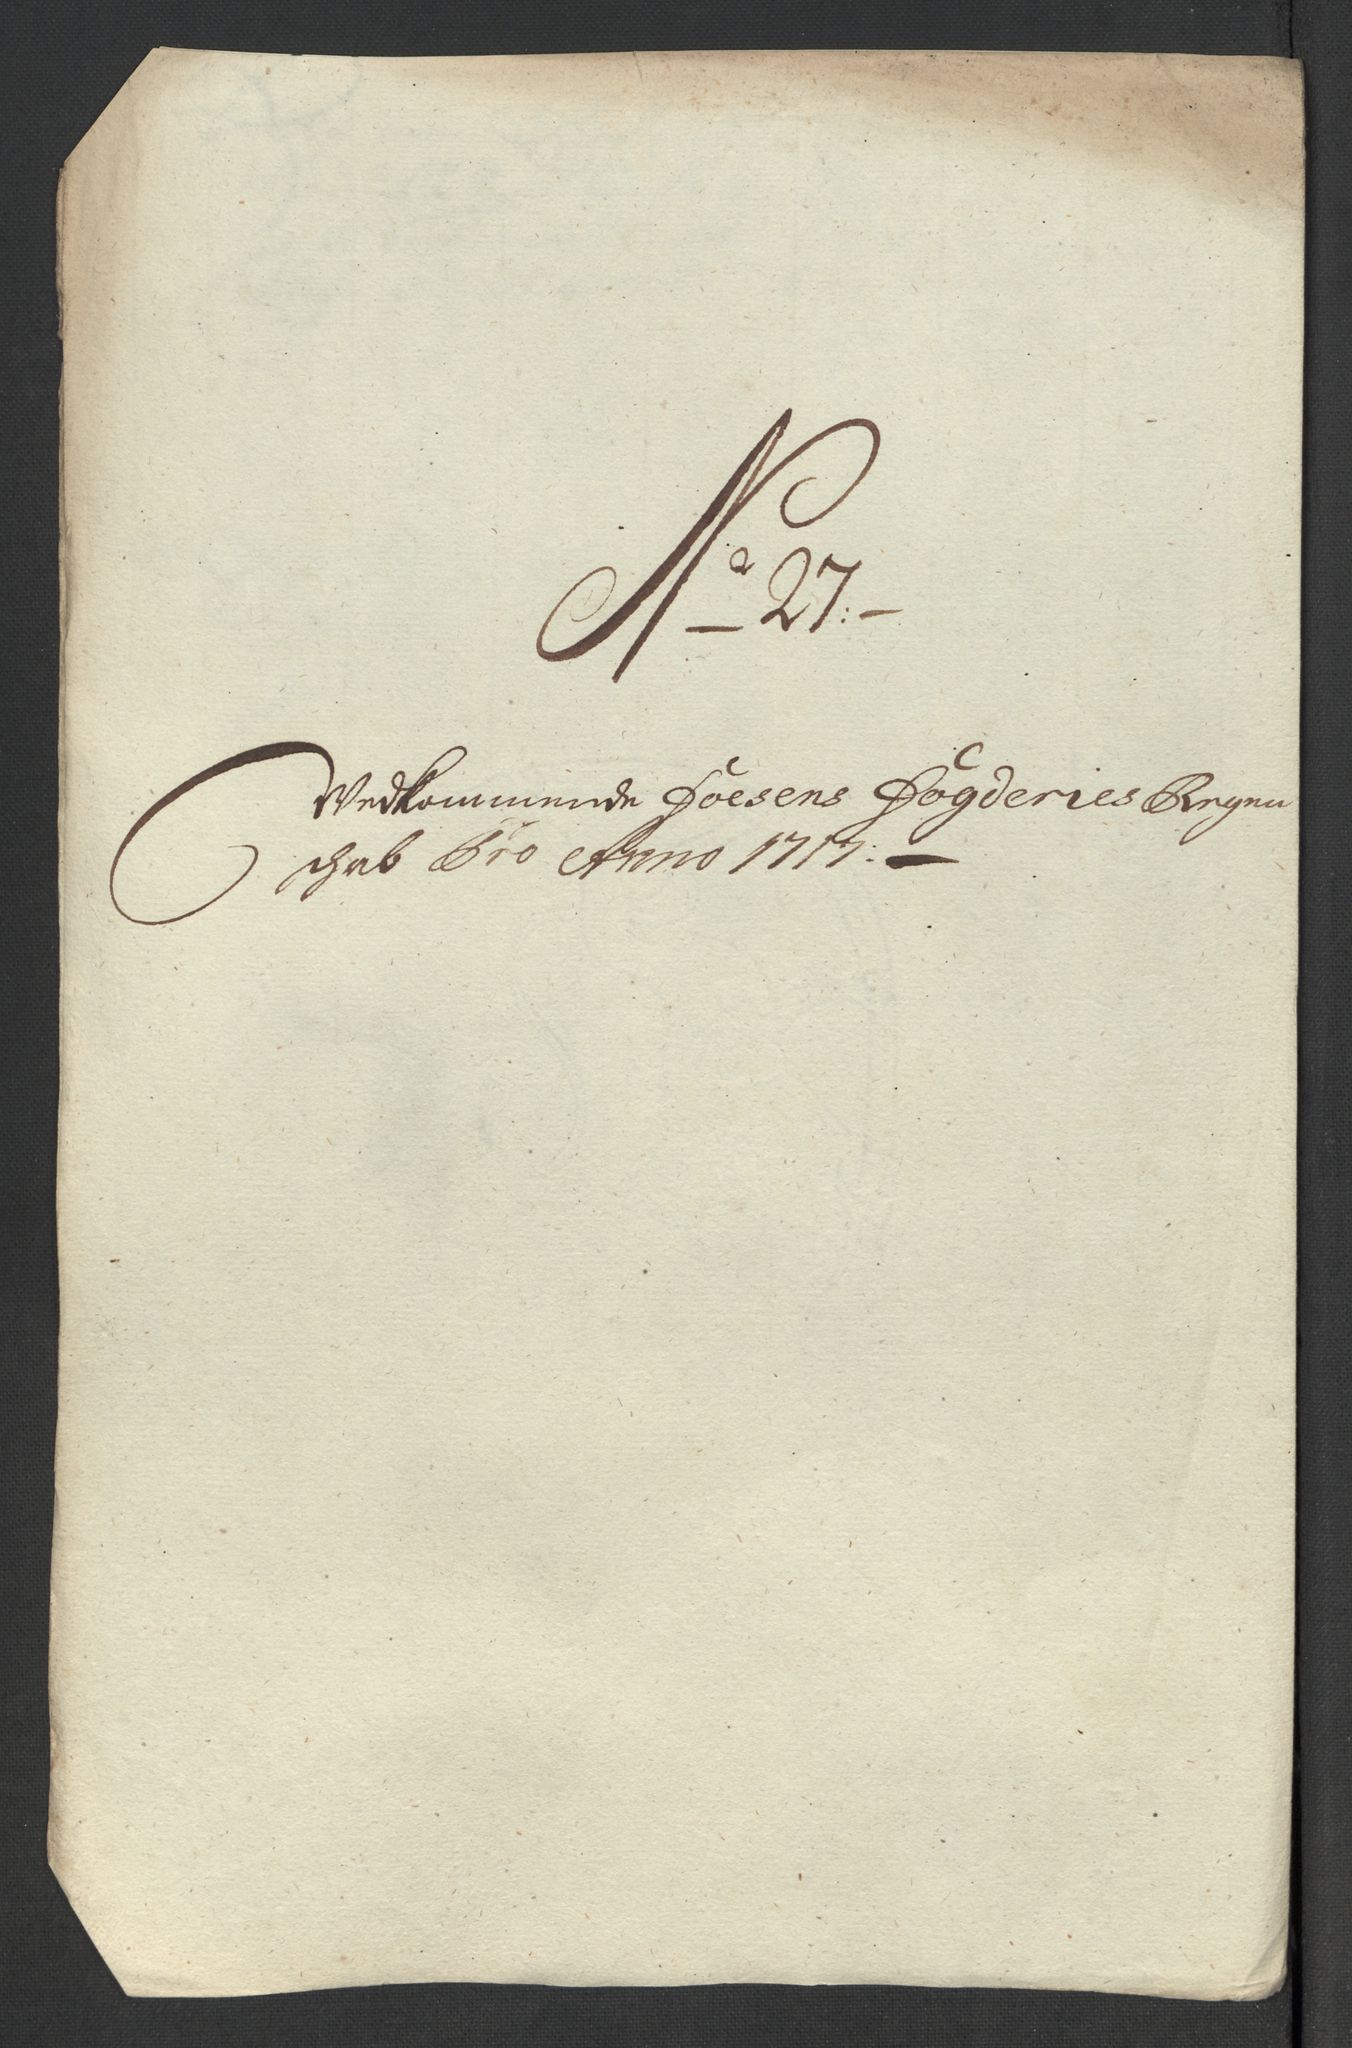 No 27:-
Vedkommende Fosens Fogderies Regen
schab Pro Anno 1717:-